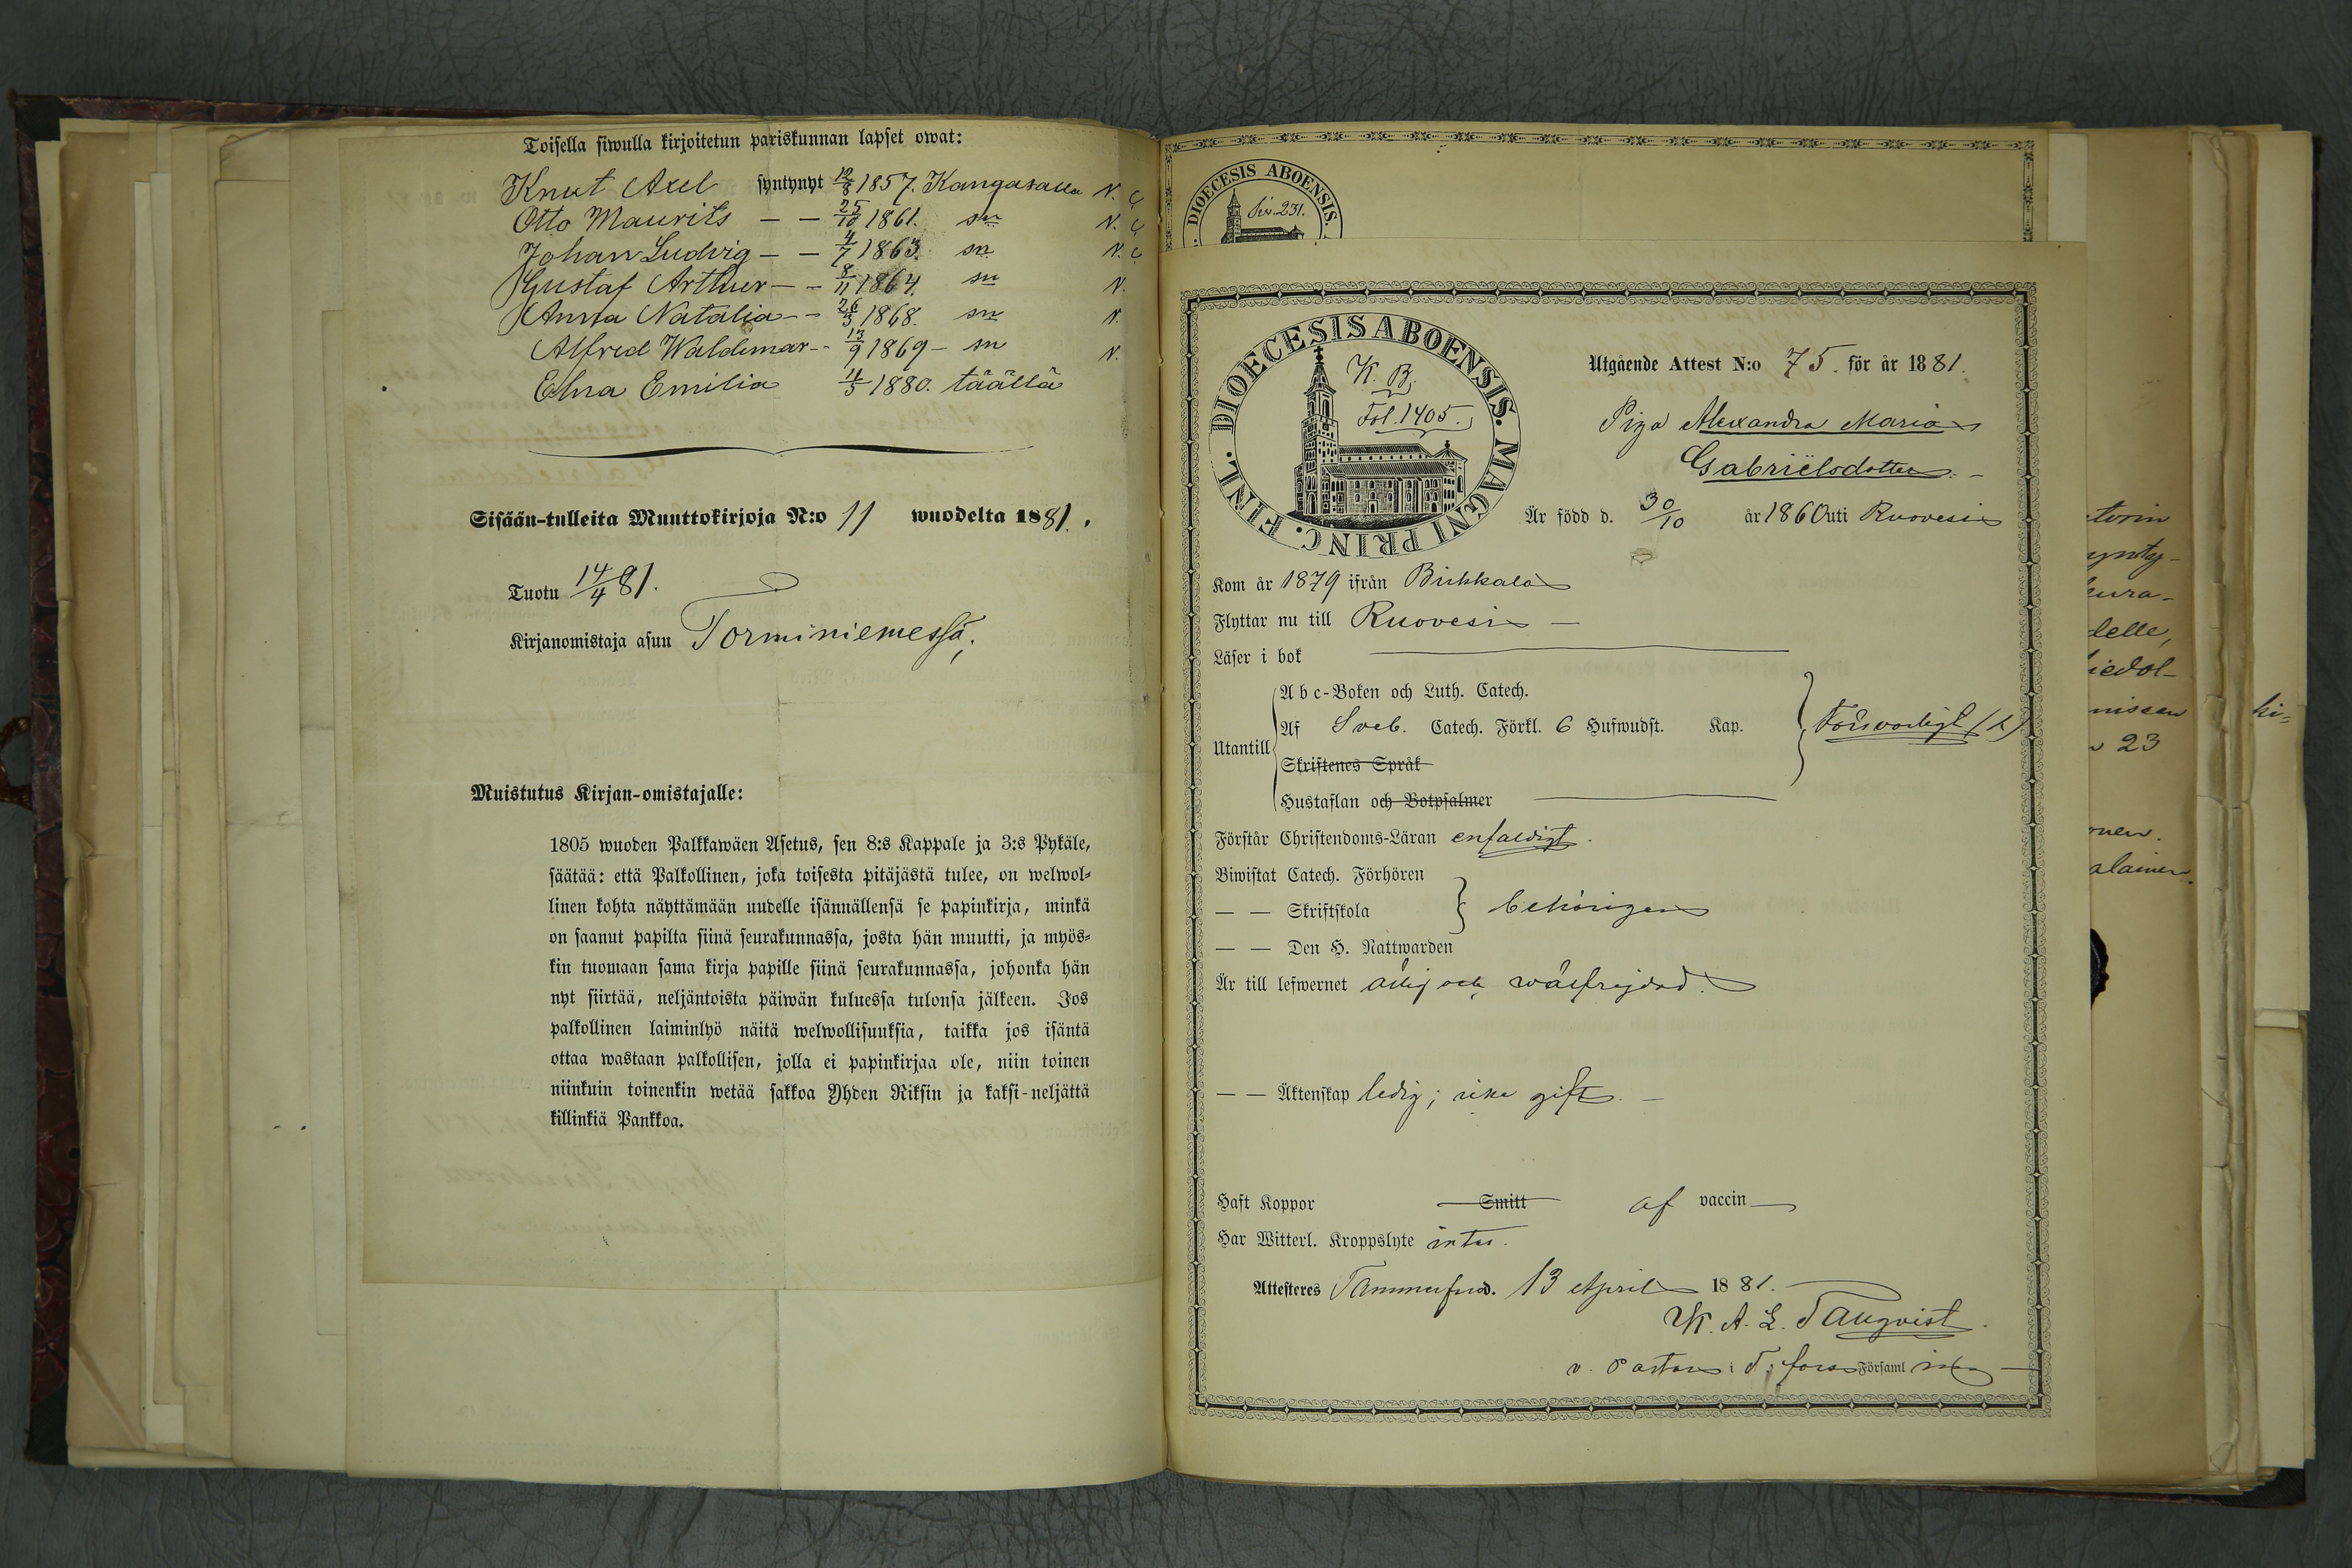 Toisella siwulla kirjoitetun pariskunnan lapset owat:
Knut Axel syntynyt 12/8 1857. Kangasalla N. C
Otto Maurits — — 25/10 1861. sn N. C
Johan Ludvig — — 4/7 1863. sn N. C
Gustaf Arthur — — 8/11 1864. sn N.
Anna Natalia — — 26/3 1868. sn N.
Alfred Waldemar — 13/9 1869 — sn N.
Elna Emilia 4/5 1880. täällä
Sisään-tulleita Muuttokirjoja N:o 11 wuodelta 1881.
Tuotu 14/4 81.
Kirjanomistaja asuu Torminiemessä.
Muistutus Kirjan-omistajalle:
1805 wuoden Palkkawäen Asetus, sen 8:s Kappale ja 3:s Pykäle,
säätää: että Palkollinen, joka toisesta pitäjästä tulee, on welwol-
linen kohta näyttämään uudelle isännällensä se papinkirja, minkä
on saanut papilta siinä seurakunnassa, josta hän muutti, ja myös-
kin tuomaan sama kirja papille siinä seurakunnassa, johonka hän
nyt siirtää, neljäntoista päiwän kuluessa tulonsa jälkeen. Jos
palkollinen laiminlyö näitä welwollisuuksia, taikka jos isäntä
ottaa wastaan palkollisen, jolla ei papinkirjaa ole, niin toinen
niinkuin toinenkin wetää sakkoa Yhden Riksin ja kaksi-neljättä
killinkiä Pankkoa.
DIOECESIS ABOENSIS.
231.
DIOECESIS ABOENSIS. MAGNI PRINC. FINL.
K. B.
Fol. 1405.
Utgående Attest N:o 75. för år 1881.
Piga Alexandra Maria
Gabrielsdotter. —
Är född d. 30/10 år 1860 uti Ruovesi
Kom år 1879 ifrån Birkkala
Flyttar nu till Ruovesi —
Läser i bok
Utantill
A b c-Boken och Luth. Catech.
Af Sveb. Catech. Förkl. 6 Hufwudst. Kap.
Försvarligt
Skriftenes Språk
Hustaflan och Botpsalmer
Förstår Christendoms-Läran enfaldigt.
Biwistat Catech. Förhören
— — Skriftskola behörigen
— — Den H. Nattwarden
Är till lefwernet ärlig och wälfrejdad.
— — Äktenskap ledig; icke gift. —
Haft Koppor Smitt af vaccin
Har Witterl. Kroppslyte intet.
Attesteres Tammerfors. 13 April 1881.
K. A. L. Tauqvist.
v. Pastor i T:fors Församling
torin
ynty-
kura-
delle,
iedol-
nissen
23
onen.
alainen.
ki-